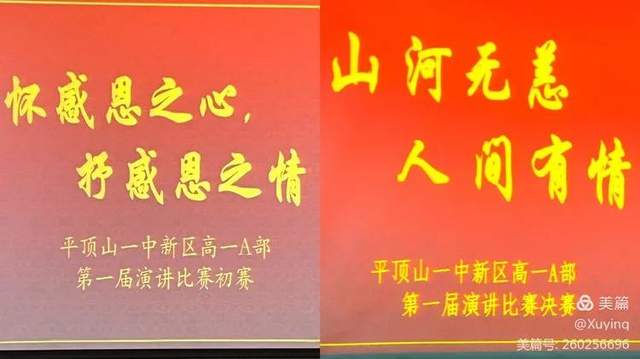 怀感恩之心,
抒感恩之情
平顶山一中新区高一A部
第一届演讲比赛初赛
山河无恙
人间有情
平顶山一中新区高一A部
第一届演讲比赛决赛
美篇
@Xuyinq
美篇号: 260256696